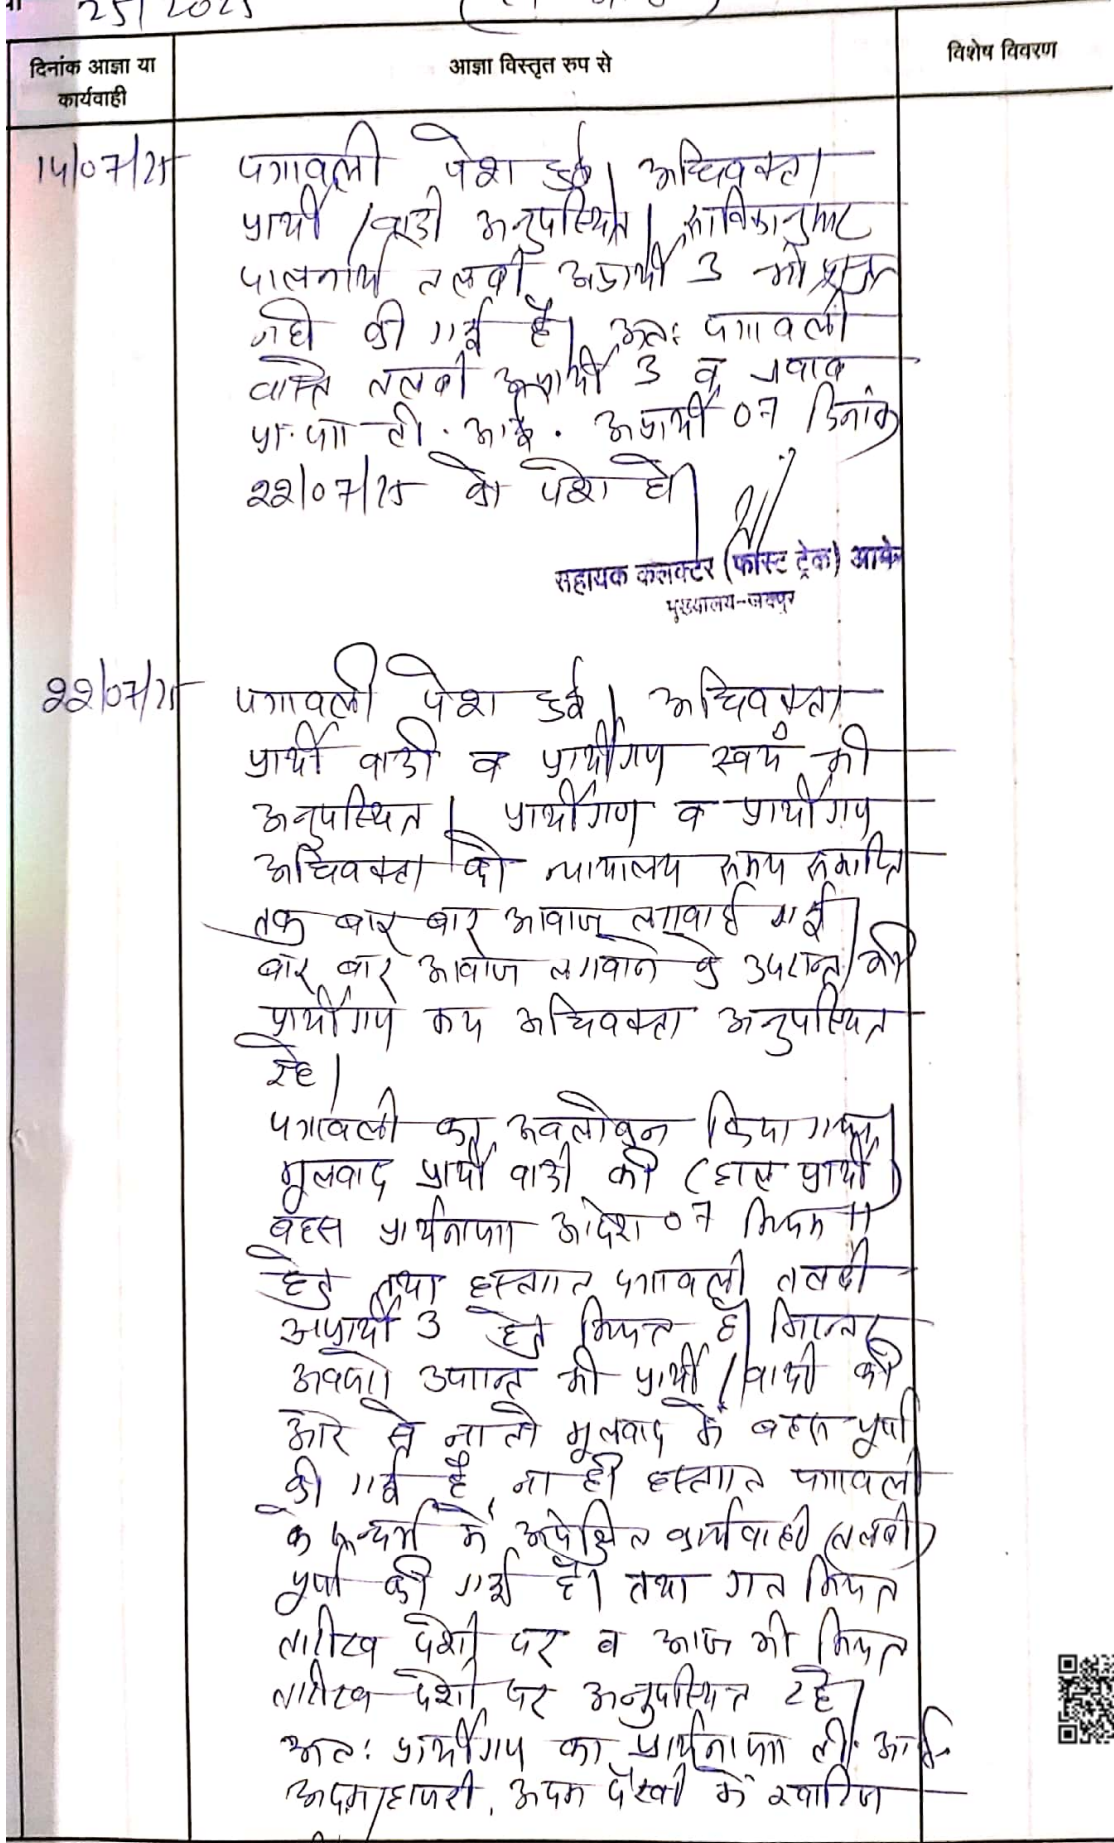 25/2025
दिनांक आज्ञा या
कार्यवाही
आज्ञा विस्तृत रुप से
विशेष विवरण
14/07/25 पत्रावली पेश हुई। अधिवक्ता
प्रार्थी/वादी अनुपस्थित। साबिकानुसार
पालनार्थ तलबी अप्रार्थी 3 भी प्रस्तुत
नही की गई है। अतः पत्रावली
वास्ते तलबी अप्रार्थी 3 व जवाब
प्रा. पत्र टी. आई. अप्रार्थी 07 दिनांक
22/07/25 को पेश हो।
सहायक कलक्टर (फास्ट ट्रेक) आमेर
मुख्यालय-जयपुर
22/07/25 पत्रावली पेश हुई। अधिवक्ता
प्रार्थी वादी व प्रार्थीगण स्वयं की
अनुपस्थित। प्रार्थीगण व प्रार्थीगण
अधिवक्ता को न्यायालय समय समाप्ति
तक बार बार आवाज लगवाई गई।
बार बार आवाज लगवाने के उपरान्त भी
प्रार्थीगण मय अधिवक्ता अनुपस्थित
रहे।
पत्रावली का अवलोकन किया गया।
मूलवाद प्रार्थी वादी की (हाल प्रार्थी)
बहस प्रार्थनापत्र आदेश 07 नियम 11
हेतु तथा हस्तगत पत्रावली तलबी
अप्रार्थी 3 हेतु नियत है। निरन्तर
अवसरो उपरान्त भी प्रार्थी/वादी की
ओर से ना तो मूलवाद मे बहस पूर्ण
की गई है, ना ही हस्तगत पत्रावली
के सन्दर्भ मे अपेक्षित कार्यवाही (तलबी)
पूर्ण की गई है। तथा गत नियत
तारीख पेशी पर व आज भी नियत
तारीख पेशी पर अनुपस्थित रहे।
अतः प्रार्थीगण का प्रार्थनापत्र टी. आई.
अदम हाजरी, अदम पैरवी मे खारिज